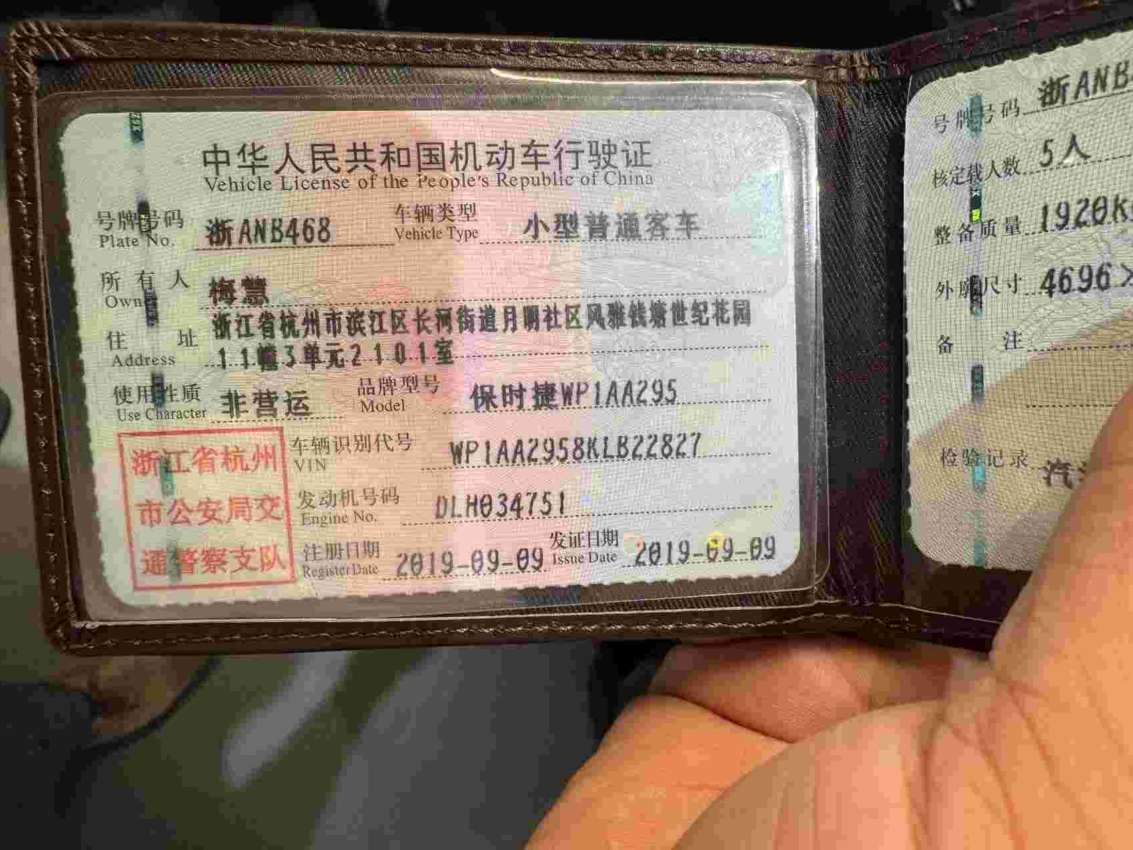 中华人民共和国机动车行驶证
Vehicle License of the People's Republic of China
号牌号码 浙ANB468 车辆类型 小型普通客车
Plate No. Vehicle Type
所有人 梅慧
Owner
住址 浙江省杭州市滨江区长河街道月明社区风雅钱塘世纪花园
Address 11幢3单元2101室
使用性质 非营运 品牌型号 保时捷WP1AA295
Use Character Model
浙江省杭州
市公安局交
通警察支队
车辆识别代号 WP1AA2958KLB22827
VIN
发动机号码 DLH034751
Engine No.
注册日期 2019-09-09 发证日期 2019-09-09
Register Date Issue Date
号牌号码 浙ANB
核定载人数 5人
整备质量 1920K
外廓尺寸 4696×
备注
检验记录 汽